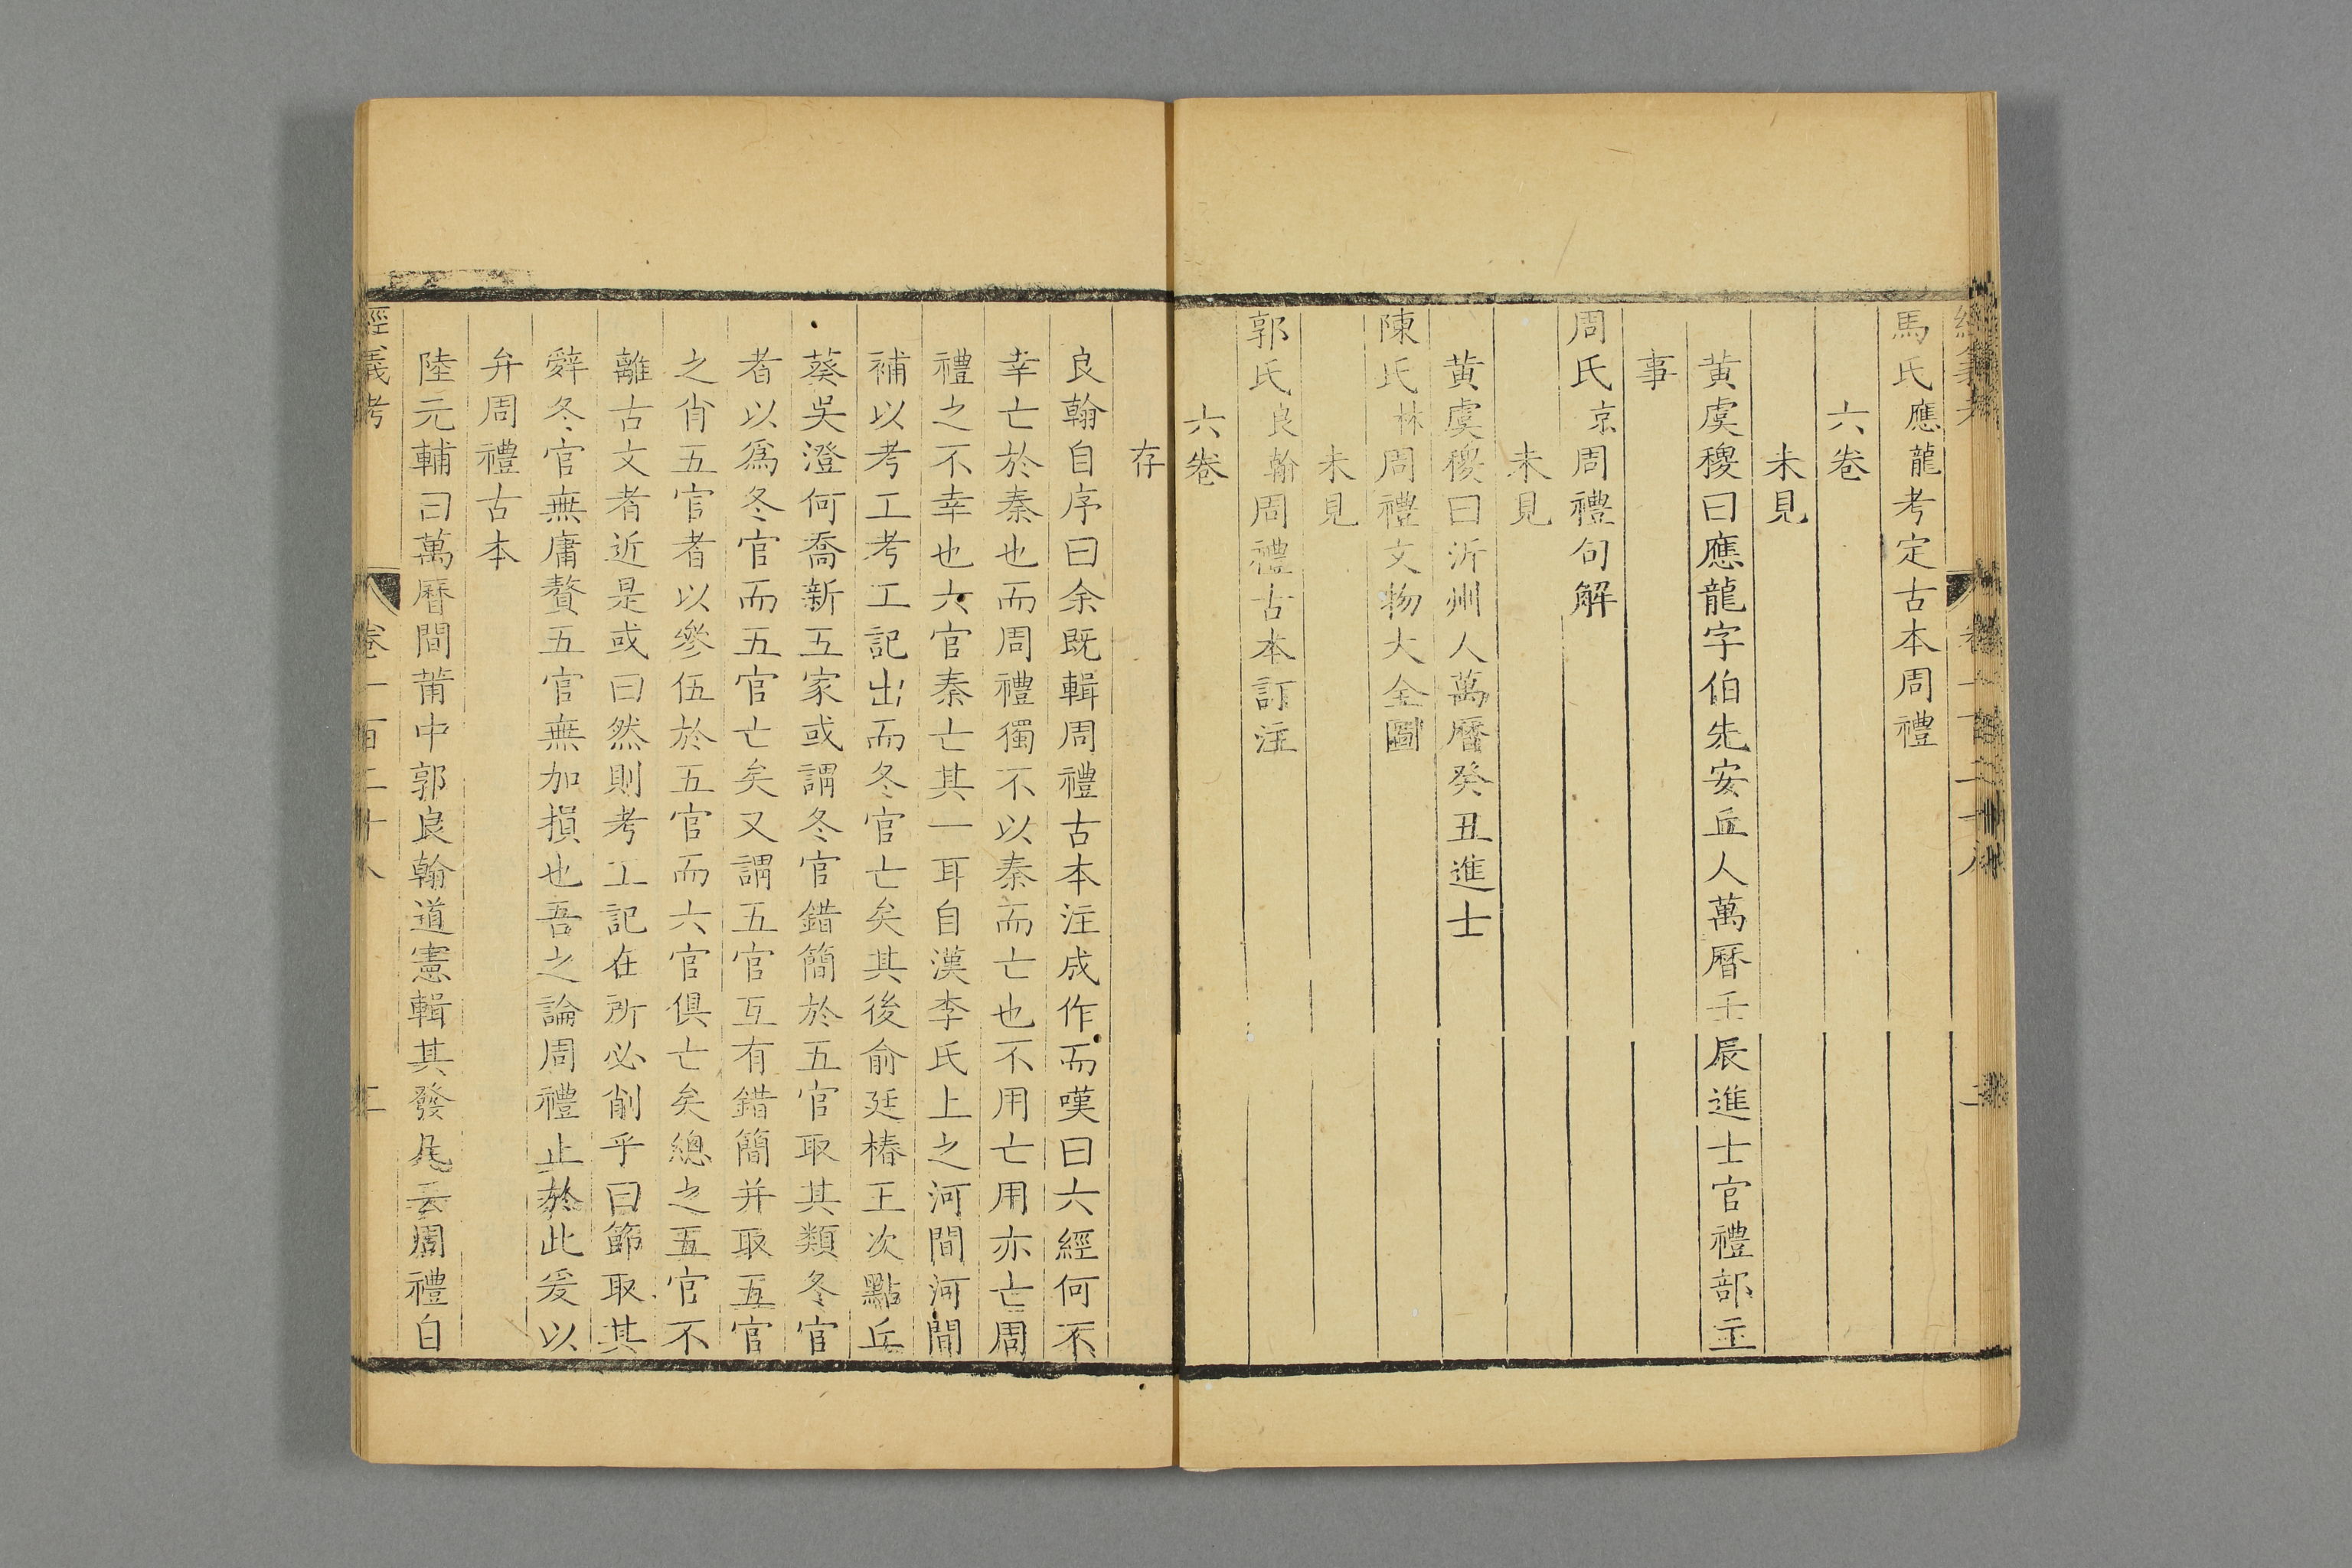 馬氏應龍考定古本周禮
六卷
未見
黃虞稷曰應龍字伯先安丘人萬曆壬辰進士官禮部主
事
周氏京周禮句解
未見
黃虞稷曰沂州人萬曆癸丑進士
陳氏林周禮文物大全圖
未見
郭氏良翰周禮古本訂注
六卷
存
良翰自序曰余既輯周禮古本注成作而嘆曰六經何不
幸亡於秦也而周禮獨不以秦而亡也不用亡用亦亡周
禮之不幸也六官秦亡其一耳自漢李氏上之河間河間
補以考工考工記出而冬官亡矣其後俞廷椿王次點丘
葵吳澄何喬新五家或謂冬官錯簡於五官取其類冬官
者以爲冬官而五官亡矣又謂五官互有錯簡并取五官
之肖五官者以參伍於五官而六官俱亡矣總之五官不
離古文者近是或曰然則考工記在所必削乎曰節取其
辭冬官無庸贅五官無加損也吾之論周禮止於此爰以
弁周禮古本
陸元輔曰萬曆間莆中郭良翰道憲輯其發凡云周禮自
經義考 卷一百二十八 二